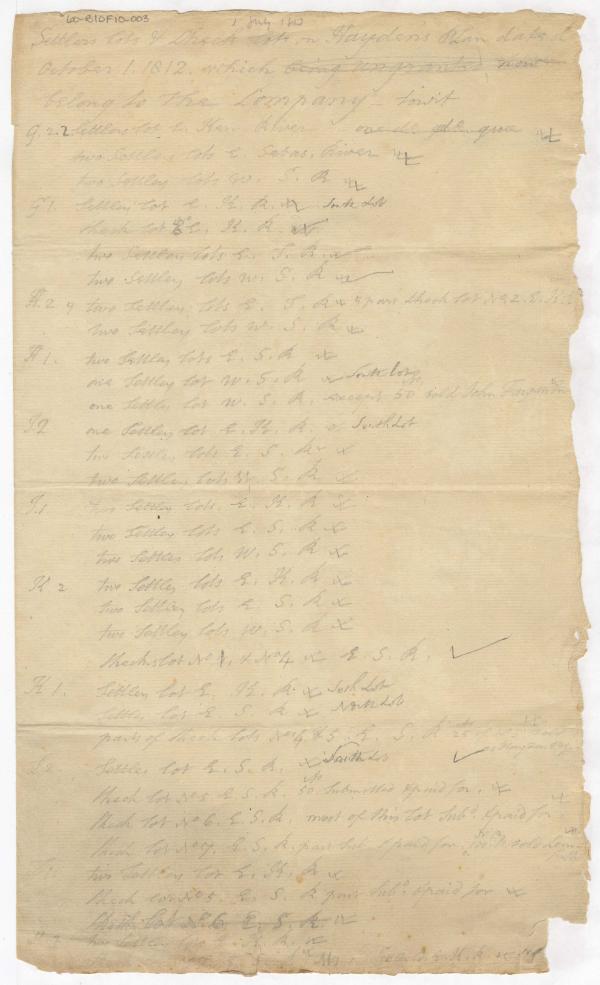 60-B10F10-003
1 July 1813
Settlers Lots & Check Lots on Hayden's Plan dated
October 1. 1812. which being ungranted, now
belong to the Company - towit
G. 2. 2 Settlers Lot E. Ken. River one do. do. gree
two Settlers Lots E. Sebas. River
two Settlers Lots W. S. R
G 1. Settlers Lot E. K. R. South Lot
Check Lot E. K. R.
two Settlers Lots E. S. R.
two Settlers Lots W. S. R
H. 2 two Settlers Lots E. S. R & part Check Lot No 2. E. K. R
two Settlers Lots W. S. R
H 1. two Settlers Lots E. S. R
one Settlers Lot W. S. R South Lot
one Settlers Lot W. S. R. except 50 sold John
I. 2 one Settlers Lot E. K. R. South Lot
two Settlers Lots E. S. R
two Settlers Lots W. S. R
I. 1 two Settlers Lots E. K. R
two Settlers Lots E. S. R
two Settlers Lots W. S. R
K 2 two Settlers Lots E. K. R
two Settlers Lots E. S. R
two Settlers Lots W. S. R
Check Lot No 1, & No 4 E. S. R.
K 1. Settlers Lot E. K. R South Lot
Settlers Lot E. S. R North Lot
parts of Check Lots No 4 & 5. E. S. R 25
L 2 Settlers Lot E. S. R. South Lot
Check Lot No 5 E. S. R. 50 Submitted & paid for.
Check Lot No 6. E. S. R. most of this Lot Subd. & paid for
Check Lot No 7. E. S. R. part Sub. & paid for sold
two Settlers Lot E. K. R
Check Lot No 5. E. S. R part Subd. & paid for
Check Lot No 6 E. S. R.
two Settlers Lots E. K. R.